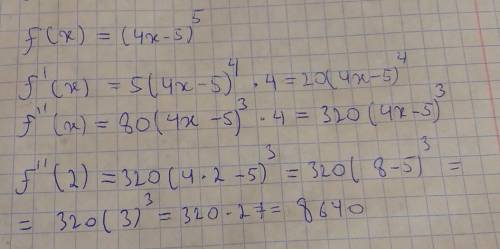 f(x) = (4x-5)^5
f'(x) = 5(4x-5)^4 · 4 = 20(4x-5)^4
f''(x) = 80(4x-5)^3 · 4 = 320(4x-5)^3
f''(2) = 320(4·2-5)^3 = 320(8-5)^3 =
= 320(3)^3 = 320·27 = 8640